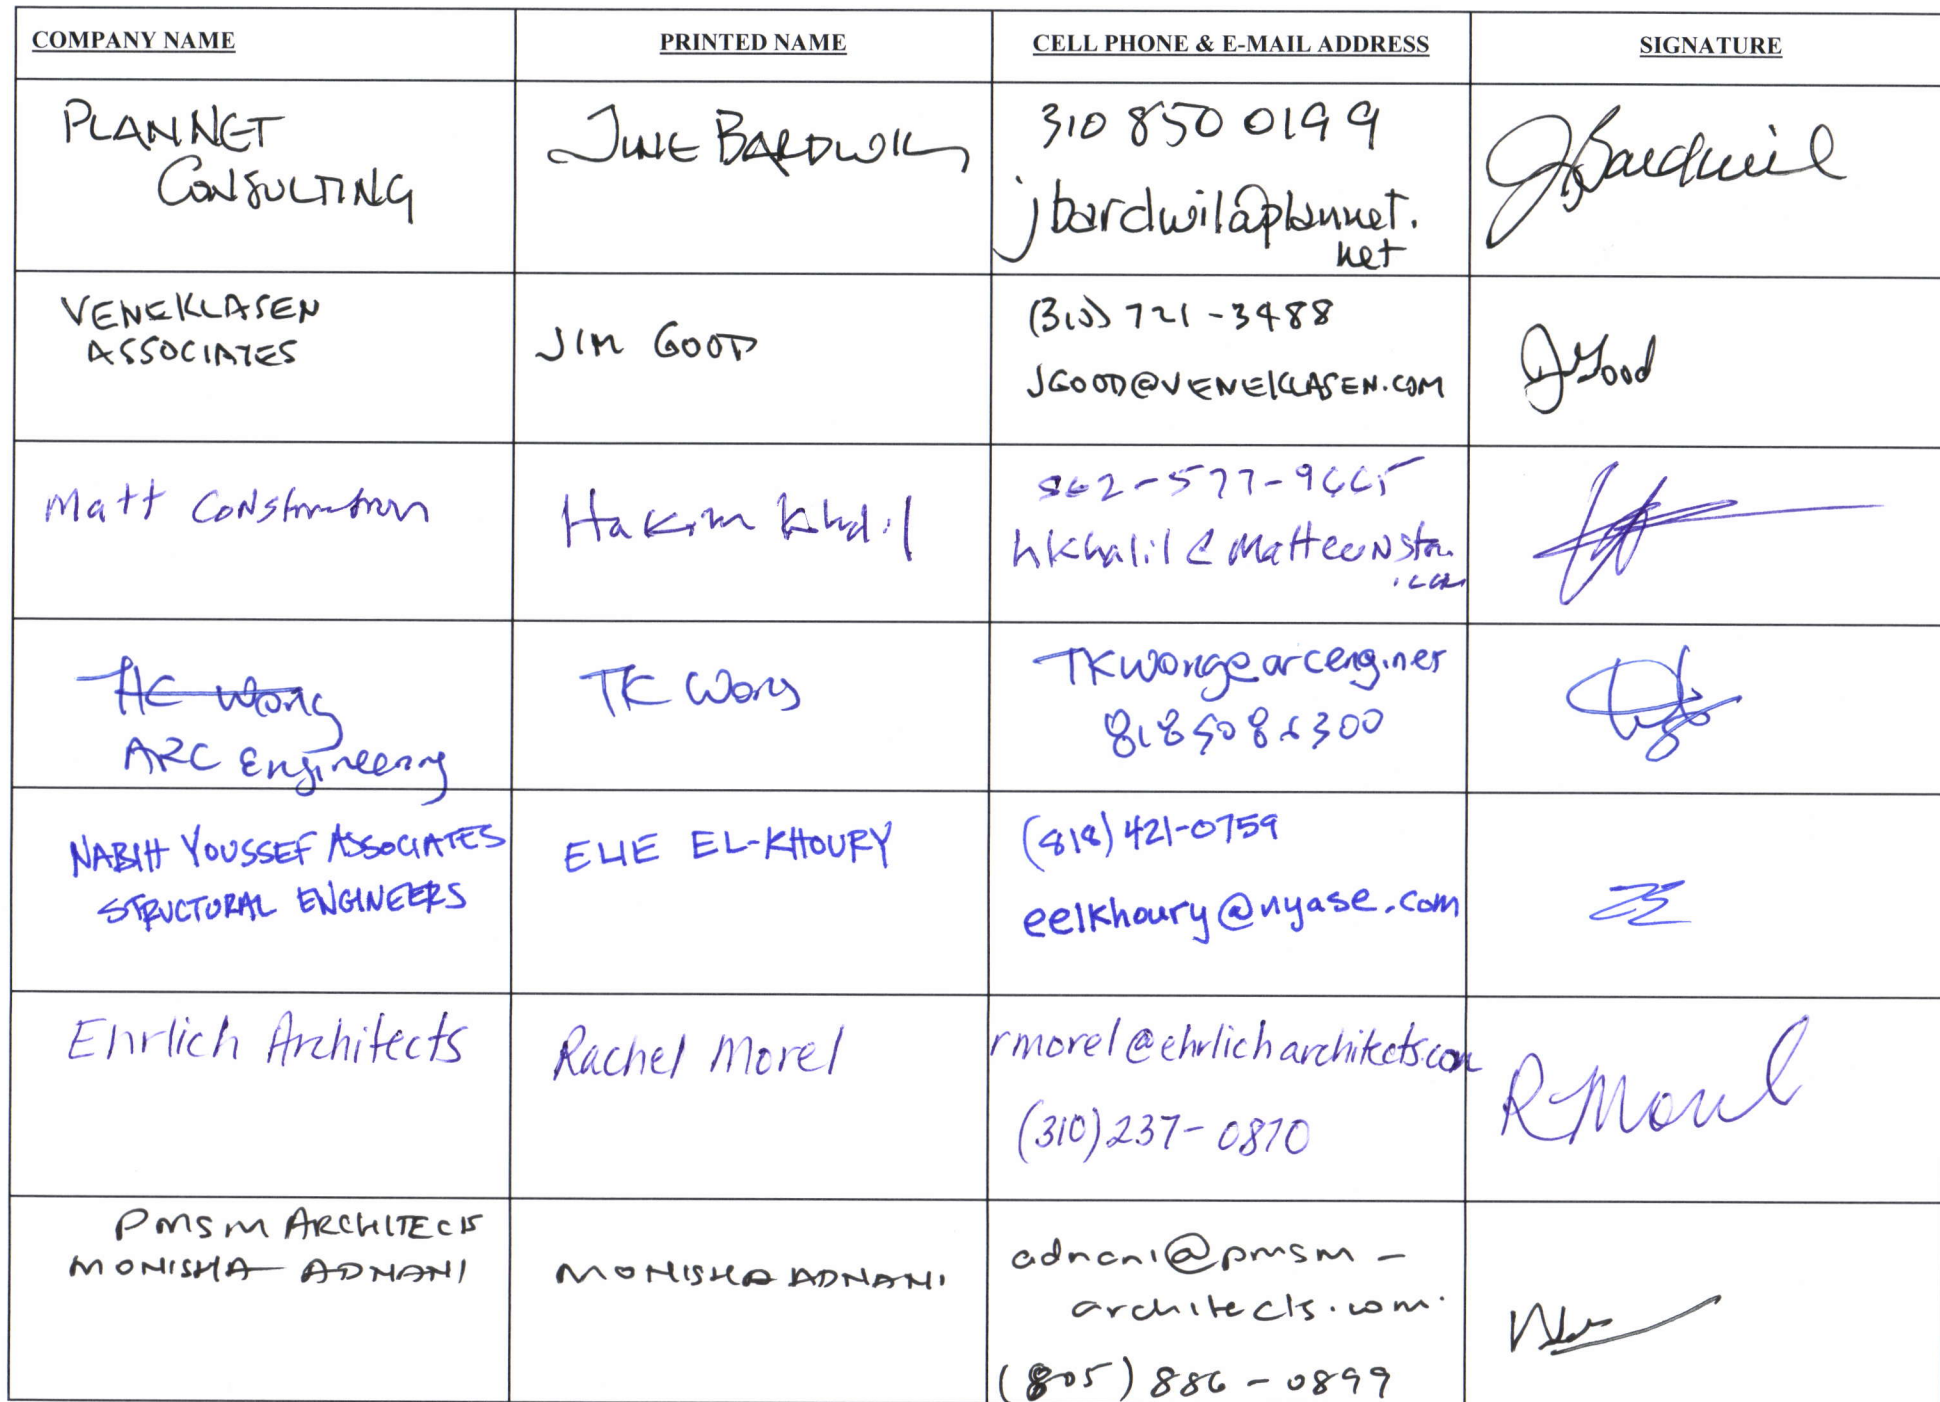 COMPANY NAME
PRINTED NAME
CELL PHONE & E-MAIL ADDRESS
SIGNATURE
PLANNET
CONSULTING
JUNE BARDWIL
310 850 0199
jbardwil@plannet.
net
JBardwil
VENEKLASEN
ASSOCIATES
JIM GOOD
(310) 721-3488
JGOOD@VENEKLASEN.COM
JGood
Matt Construction
Hakim Khalil
562-577-9665
hkhalil@Mattconstn.
.com
TK Wong
ARC Engineering
TK Wong
TKwong@arcenginer
8185086300
NABIH YOUSSEF ASSOCIATES
STRUCTURAL ENGINEERS
ELIE EL-KHOURY
(818) 421-0759
eelkhoury@nyase.com
Ehrlich Architects
Rachel Morel
rmorel@ehrlicharchitects.com
(310) 237-0870
R Morel
PMSM ARCHITECTS
MONISHA ADNANI
MONISHA ADNANI
adnani@pmsm-
architects.com.
(805) 886-0899